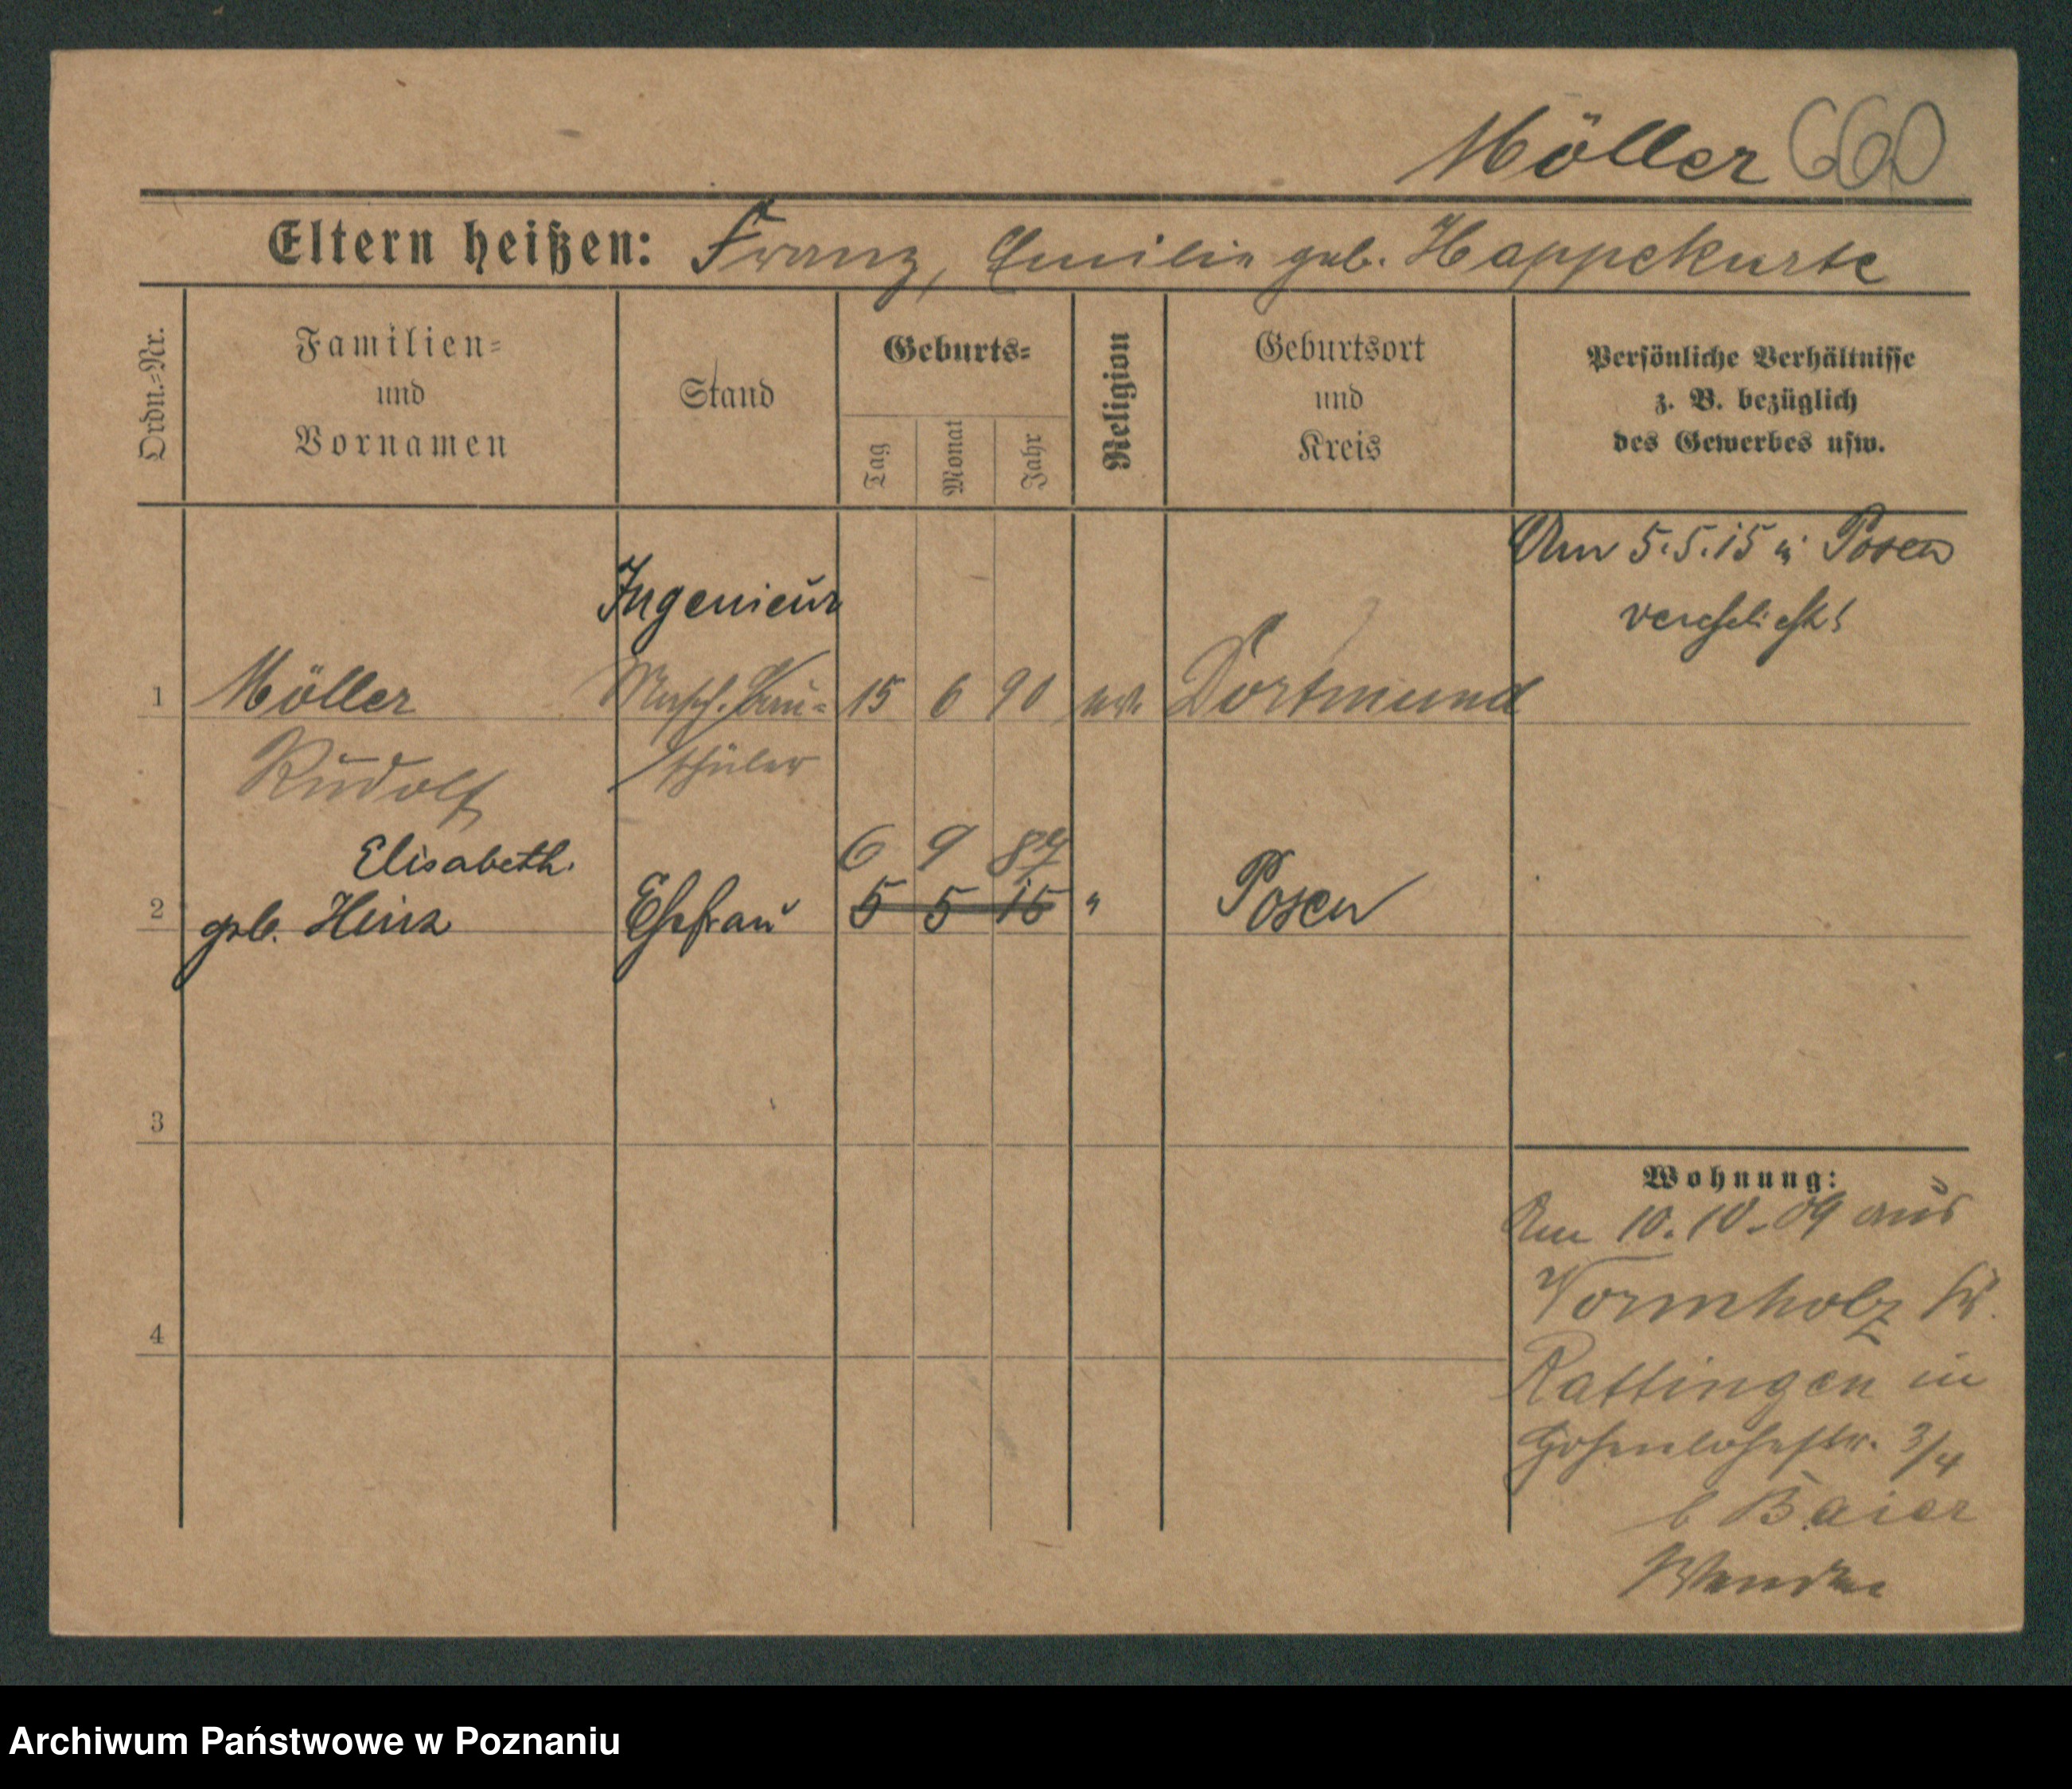 Möller 660
Eltern heißen: Franz, Emilie geb. Happekurte
Ordn.=Nr.
Familien=
und
Vornamen
Stand
Geburts=
Tag
Monat
Jahr
Religion
Geburtsort
und
Kreis
Persönliche Verhältnisse
z. B. bezüglich
des Gewerbes usw.
Am 5.5.15 i. Posen
verehelicht!
Ingenieur
1 Möller Masch.bau= 15 6 90 ev. Dortmund
Rudolf schüler
Elisabeth. 6 9 89
2 geb. Heinz Ehefrau 5 5 15 " Posen
3
4
Wohnung:
Am 10.10.09 aus
Vormholz Kr.
Hattingen in
Hohenlohestr. 3/4
b Baier
Archiwum Państwowe w Poznaniu